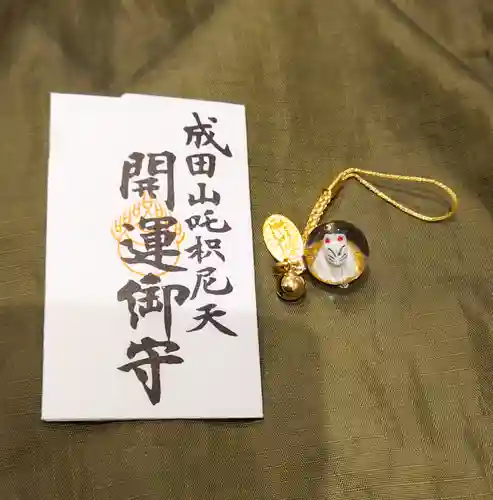 成田山吒枳尼天
開運御守